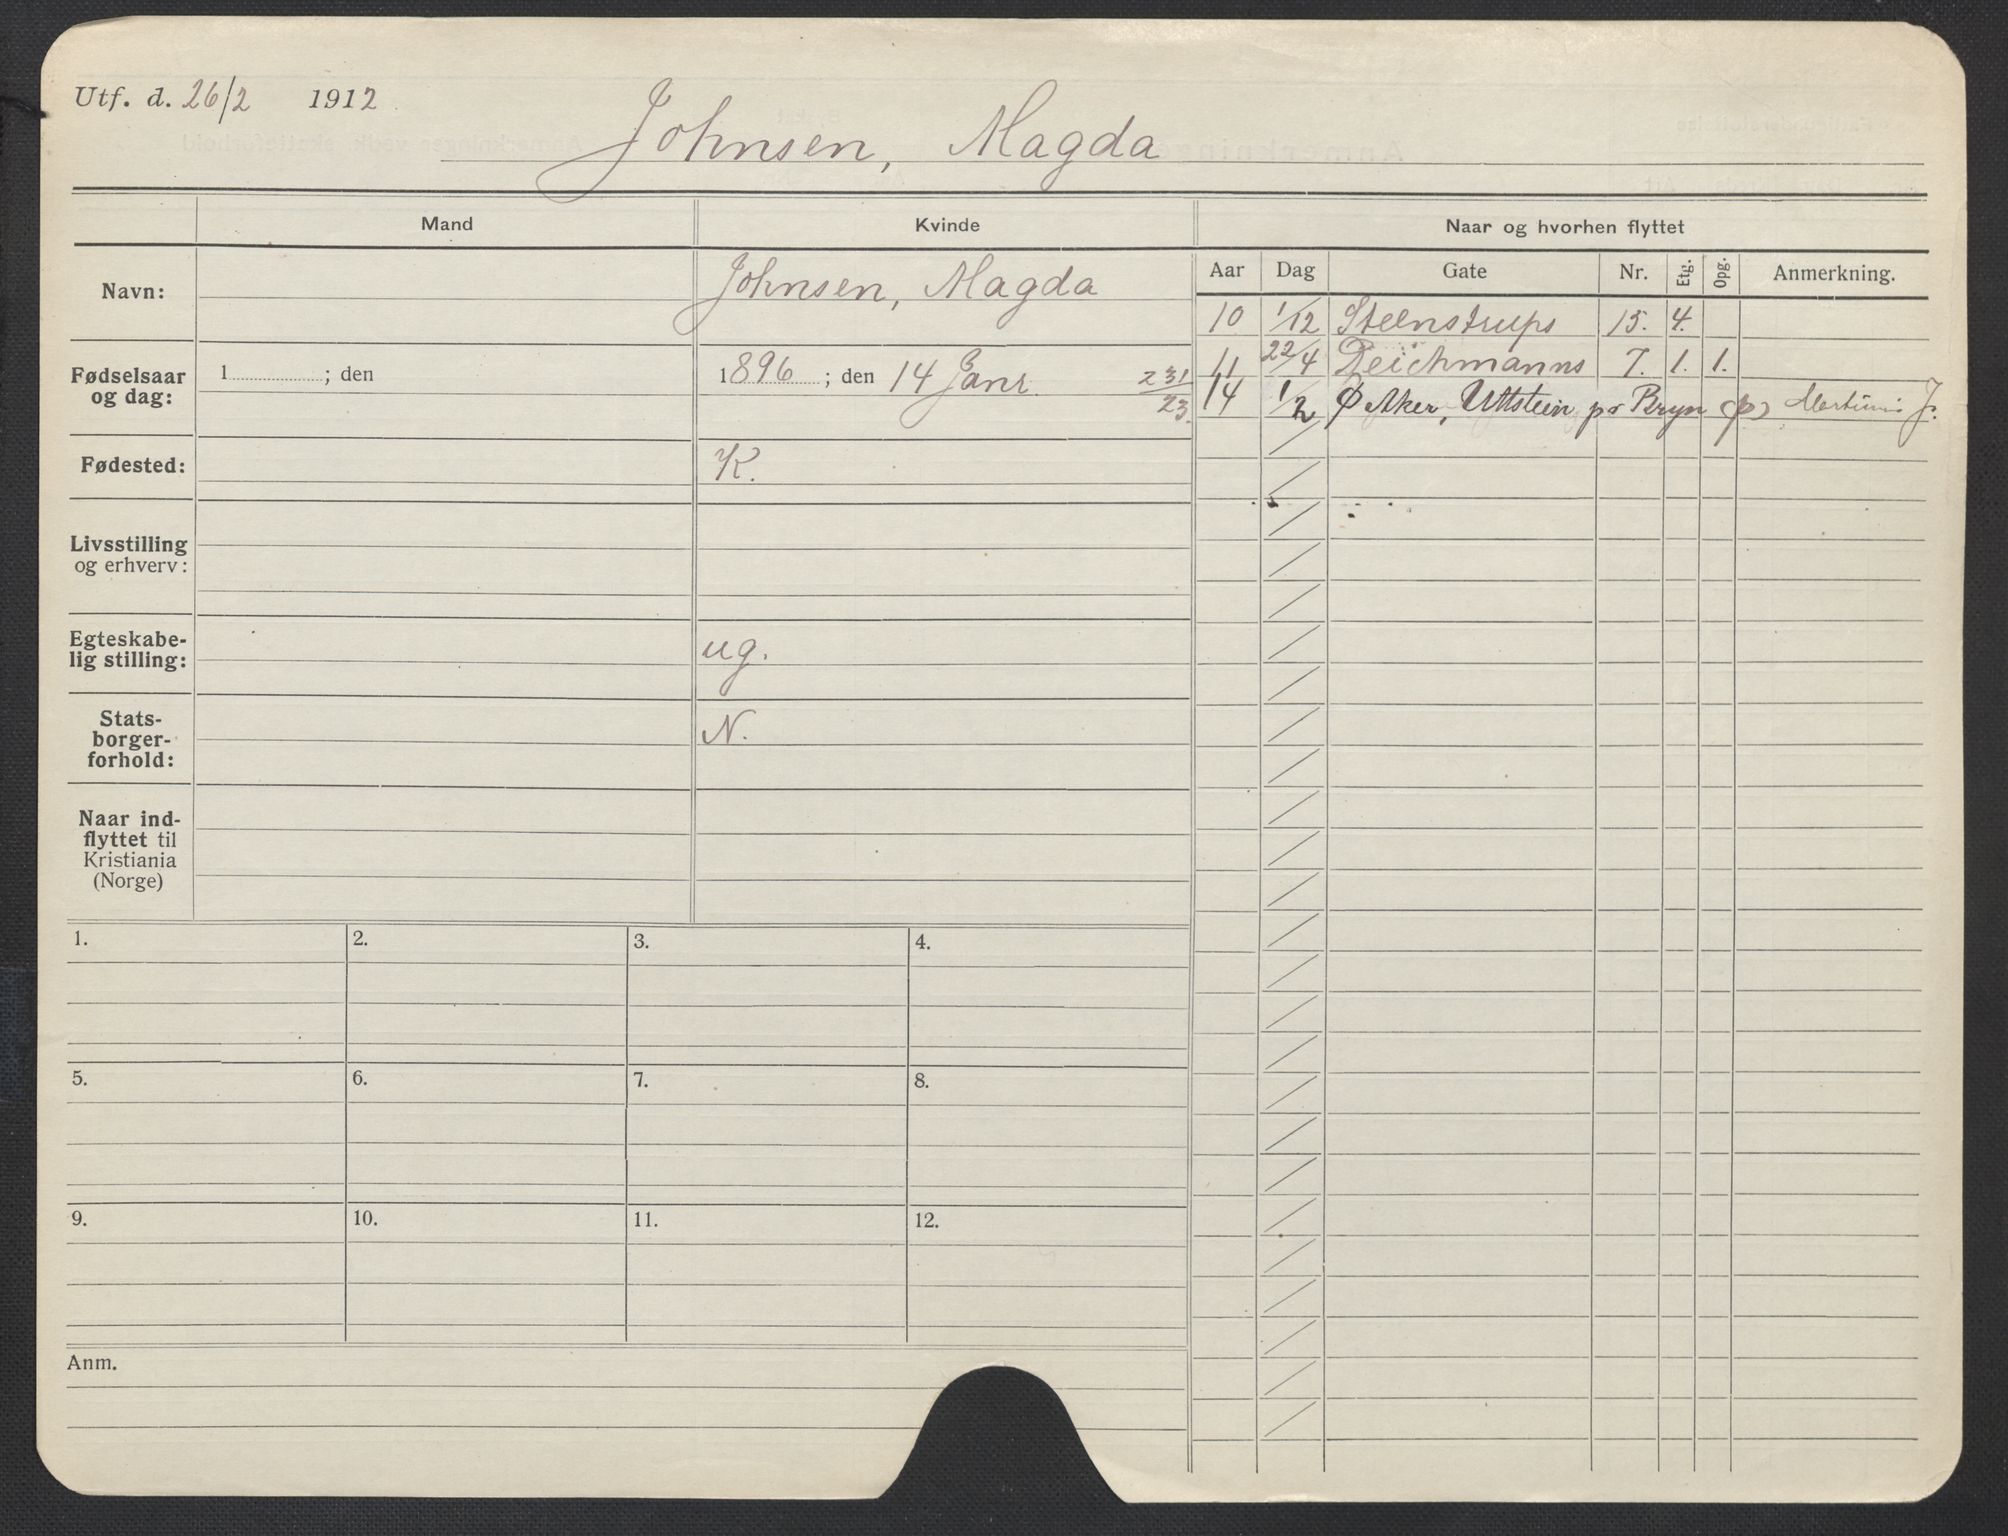 Utf. d. 26/2 1912
Johnsen, Magda
Mand
Kvinde
Naar og hvorhen flyttet
Aar Dag Gate Nr. Etg. Opg. Anmerkning.
Navn:
Johnsen, Magda
10 1/12 Steenstrups 15. 4.
11 22/4 Deichmanns 7. 1. 1.
14 1/2 Ø Aker, Uttstein pr Bryn J.
Fødselsaar
og dag:
1 ; den
1896 ; den 14 Janr. 231/23.
Fødested:
K.
Livsstilling
og erhverv:
Egteskabe-
lig stilling:
ug.
Stats-
borger-
forhold:
N.
Naar ind-
flyttet til
Kristiania
(Norge)
1. 2. 3. 4.
5. 6. 7. 8.
9. 10. 11. 12.
Anm.